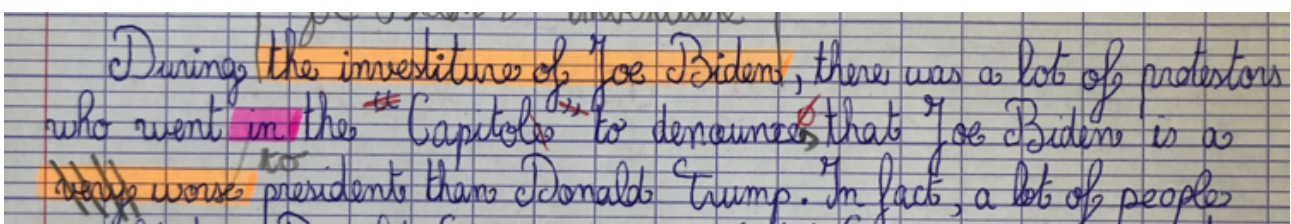 During the investiture of Joe Biden, there was a lot of protestors
who went in the "Capitole" to denounce that Joe Biden is a
to
very worse president than Donald Trump. In fact, a lot of people